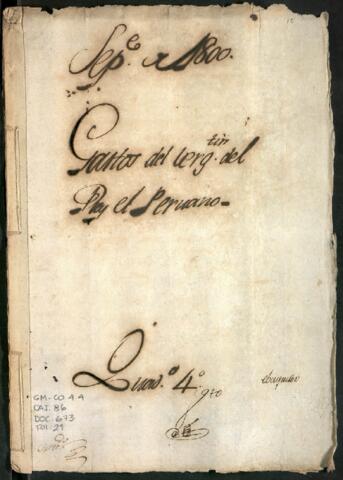 Sepe. de 1800.
Gastos del Vergtin. del
Rey el Peruano
Quado. 4°
GM-CO 44
CAJ. 86
DOC. 673
FOL. 29